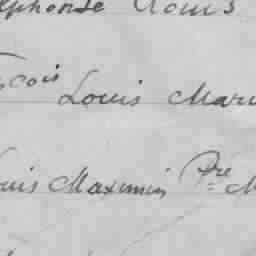 lphonse Louis
çois Louis Mari
uis Maximin Pre M